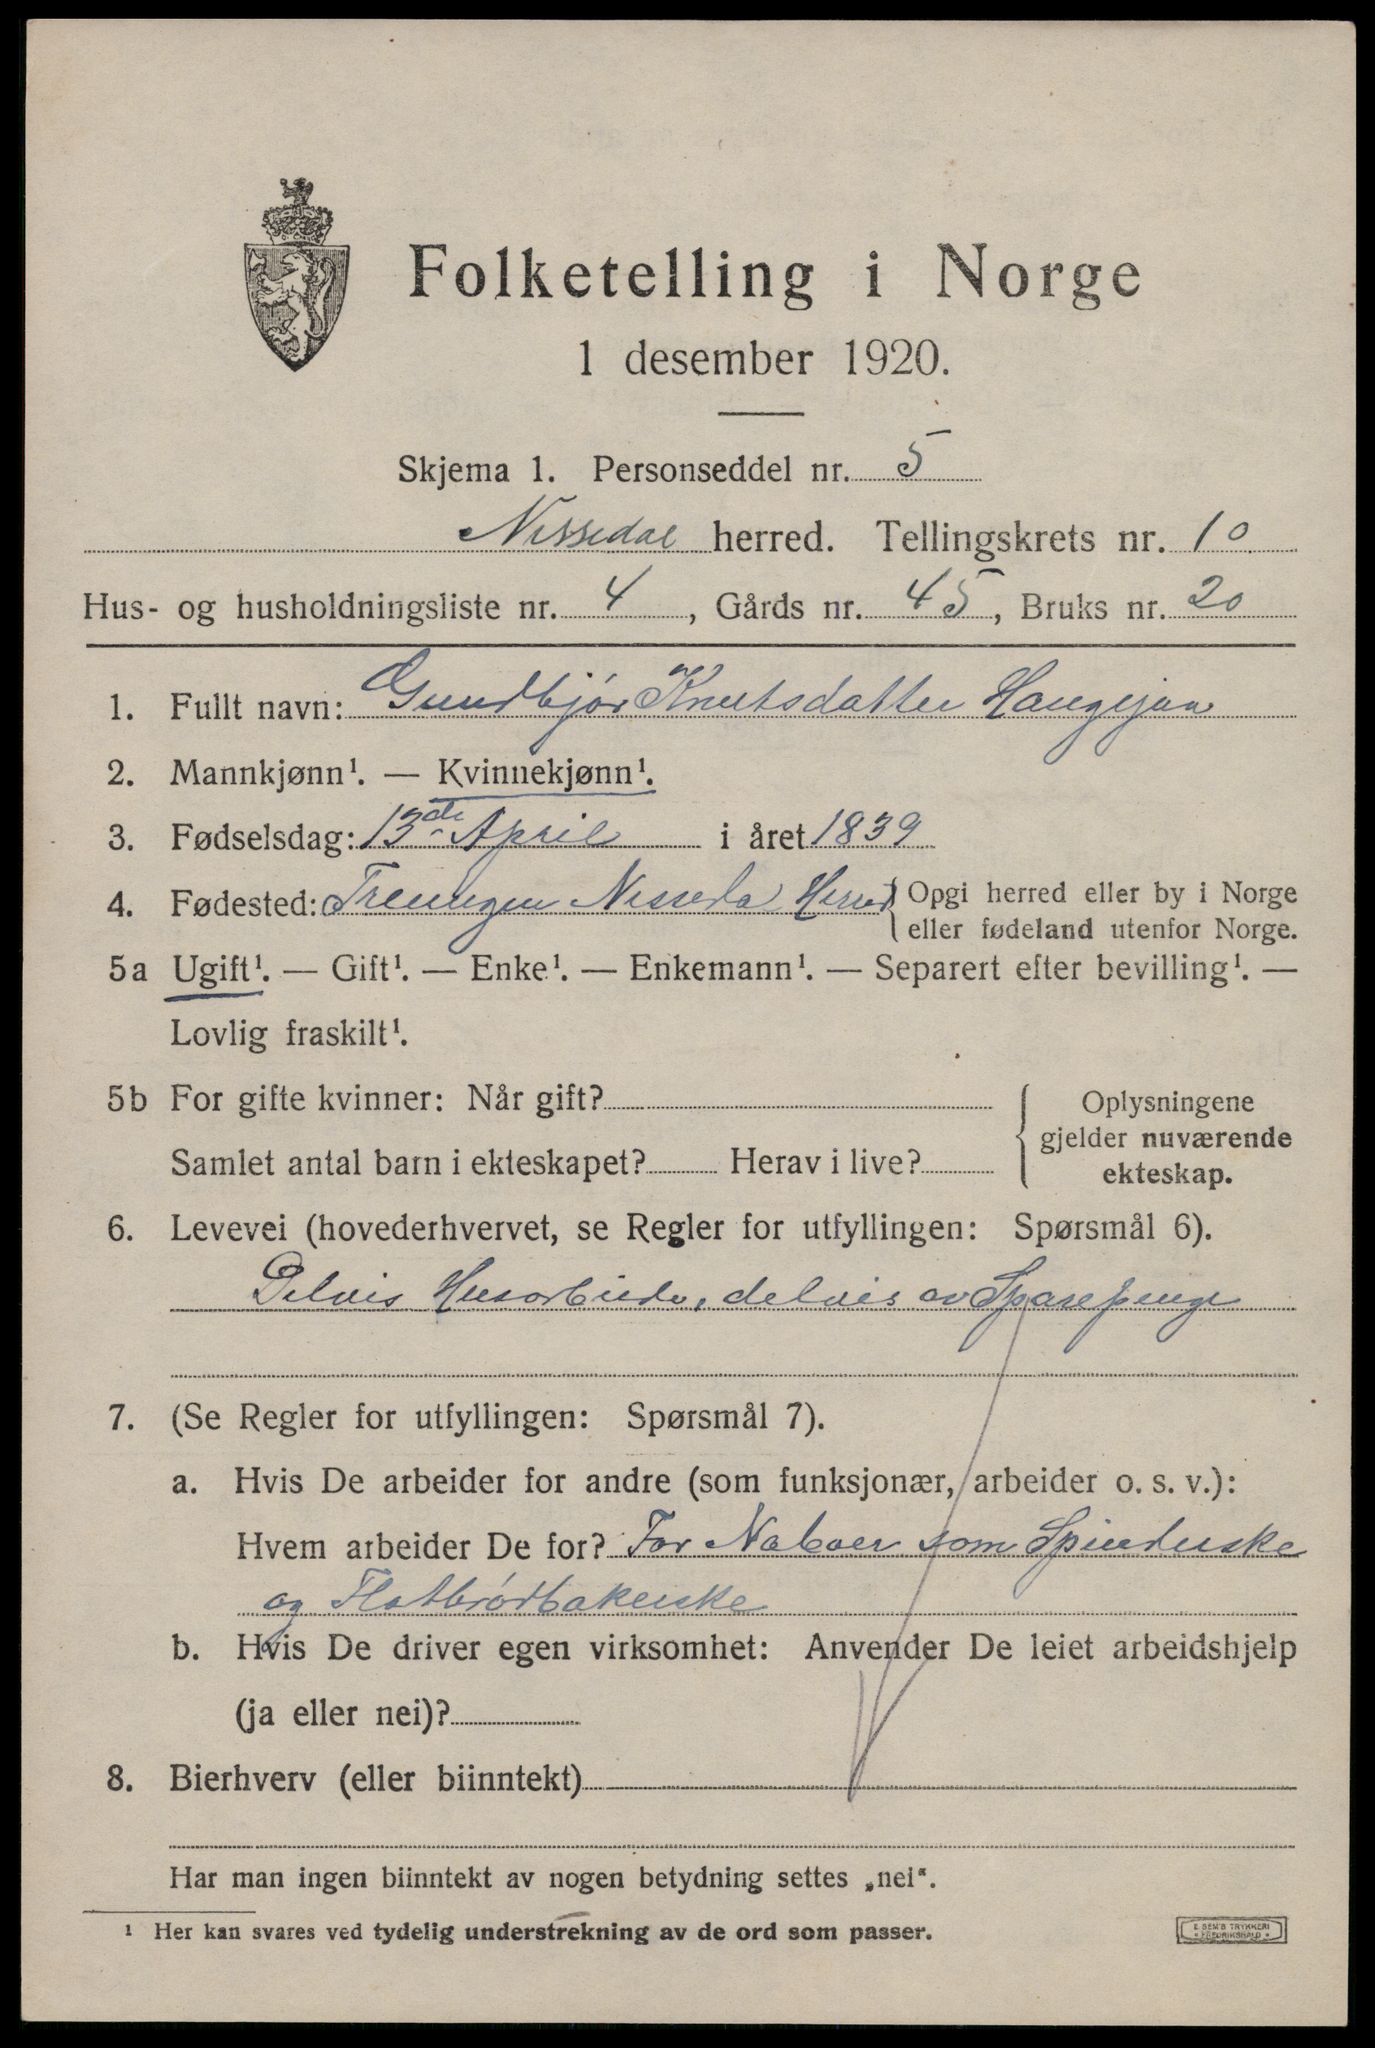 Folketelling i Norge
1 desember 1920.
Skjema 1. Personseddel nr. 5
Nissedal herred. Tellingskrets nr. 10
Hus- og husholdningsliste nr. 4, Gårds nr. 45, Bruks nr. 20
1. Fullt navn: Gundbjør Knutsdatter Haugejaa
2. Mannkjønn¹. — Kvinnekjønn¹.
3. Fødselsdag: 13de April i året 1839
4. Fødested: Treungen Nisseda Herred { Opgi herred eller by i Norge
eller fødeland utenfor Norge.
5a Ugift¹. — Gift¹. — Enke¹. — Enkemann¹. — Separert efter bevilling¹. —
Lovlig fraskilt¹.
5b For gifte kvinner: Når gift?
Samlet antal barn i ekteskapet? Herav i live?
{ Oplysningene
gjelder nuværende
ekteskap.
6. Levevei (hovederhvervet, se Regler for utfyllingen: Spørsmål 6).
Delvis Husarbeide, delvis av Sparepenge
7. (Se Regler for utfyllingen: Spørsmål 7).
a. Hvis De arbeider for andre (som funksjonær, arbeider o. s. v.):
Hvem arbeider De for? For Naboer som Spinderske
og Flatbrødbakerske
b. Hvis De driver egen virksomhet: Anvender De leiet arbeidshjelp
(ja eller nei)?
8. Bierhverv (eller biinntekt)
Har man ingen biinntekt av nogen betydning settes „nei“.
¹ Her kan svares ved tydelig understrekning av de ord som passer.
E. SEM'S TRYKKERI
FREDRIKSHALD